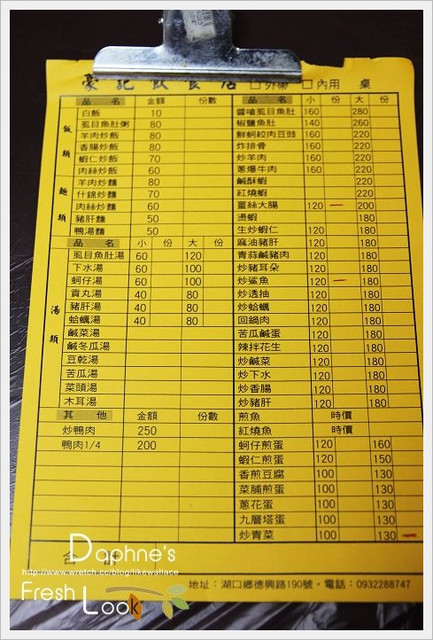 豪記飲食店 □外帶 □內用 桌
品名 金額 份數
飯類
白飯 10
虱目魚肚粥 80
羊肉炒飯 80
香腸炒飯 80
蝦仁炒飯 70
肉絲炒飯 60
麵類
羊肉炒麵 80
什錦炒麵 70
肉絲炒麵 60
豬肝麵 50
鴨湯麵 50
品名 小 份 大 份
湯類
虱目魚肚湯 60 120
下水湯 60 100
蚵仔湯 60 100
貢丸湯 40 80
豬肝湯 40 80
蛤蠣湯 40 80
鹹菜湯
鹹冬瓜湯
豆乾湯
苦瓜湯
菜頭湯
木耳湯
其他 金額 份數
炒鴨肉 250
鴨肉1/4 200
品名 小 份 大 份
醬嗆虱目魚肚 160 280
椒鹽魚肚 140 260
鮮蚵絞肉豆豉 160 220
炸排骨 160 220
炒羊肉 160 220
蔥爆牛肉 160 220
鹹酥蝦 220
紅燒蝦 220
薑絲大腸 120 200
燙蝦 180
生炒蝦仁 120 180
麻油豬肝 120 180
青蒜鹹豬肉 120 180
炒豬耳朵 120 180
炒鯊魚 120 180
炒透抽 120 180
炒蛤蠣 120 180
回鍋肉 120 180
苦瓜鹹蛋 120 180
辣拌花生 120 180
炒鹹菜 120 180
炒下水 120 180
炒香腸 120 180
炒豬肝 120 180
煎魚 時價
紅燒魚 時價
蚵仔煎蛋 120 160
蝦仁煎蛋 120 150
香煎豆腐 100 130
菜脯煎蛋 100 130
蔥花蛋 100 130
九層塔蛋 100 130
炒青菜 100 130
合
地址：湖口鄉德興路190號・電話：0932288747
Daphne's
Fresh Look